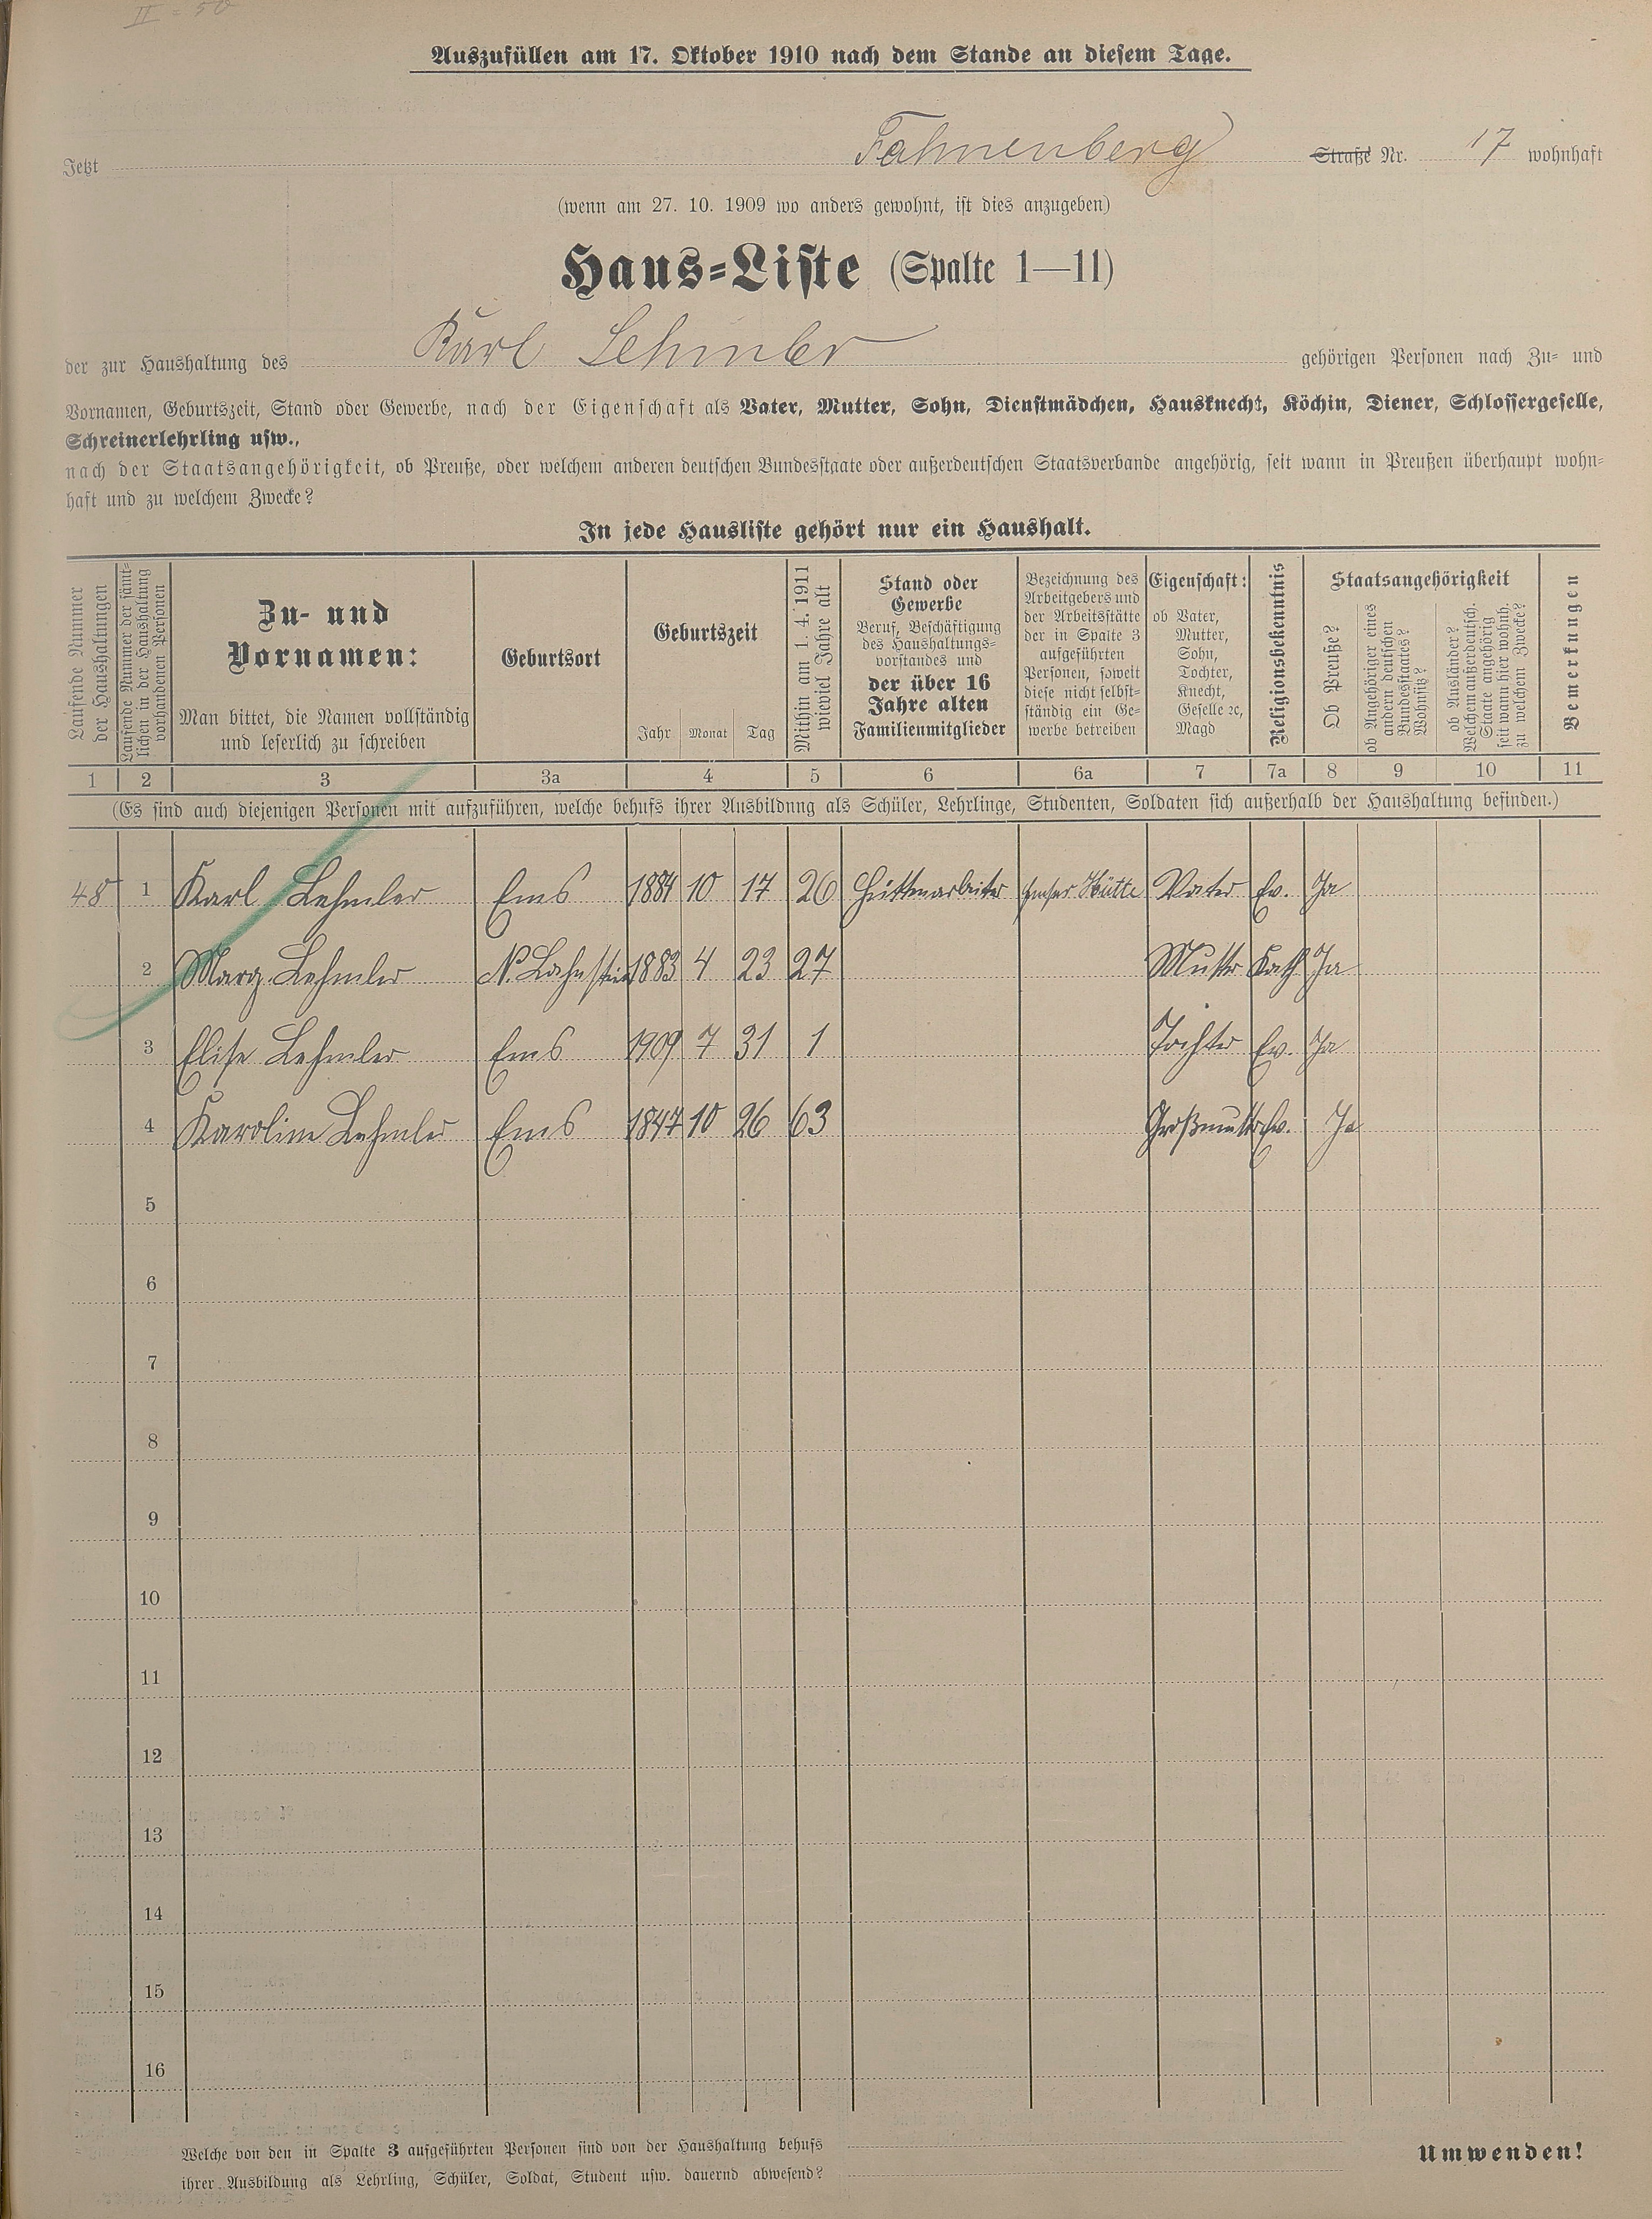 II = 50
Auszufüllen am 17. Oktober 1910 nach dem Stande an diesem Tage.
Jetzt Fahnenberg Straße Nr. 17 wohnhaft
(wenn am 27. 10. 1909 wo anders gewohnt, ist dies anzugeben)
Haus-Liste (Spalte 1—11)
der zur Haushaltung des Karl Lehmler gehörigen Personen nach Zu- und
Vornamen, Geburtszeit, Stand oder Gewerbe, nach der Eigenschaft als Vater, Mutter, Sohn, Dienstmädchen, Hausknecht, Köchin, Diener, Schlossergeselle,
Schreinerlehrling usw.,
nach der Staatsangehörigkeit, ob Preuße, oder welchem anderen deutschen Bundesstaate oder außerdeutschen Staatsverbande angehörig, seit wann in Preußen überhaupt wohn-
haft und zu welchem Zwecke?
In jede Hausliste gehört nur ein Haushalt.
Laufende Nummer
der Haushaltungen
Laufende Nummer der sämt-
lichen in der Haushaltung
vorhandenen Personen
Zu- und
Vornamen:
Man bittet, die Namen vollständig
und leserlich zu schreiben
Geburtsort
Geburtszeit
Jahr Monat Tag
Mithin am 1. 4. 1911
wieviel Jahre alt
Stand oder
Gewerbe
Beruf, Beschäftigung
des Haushaltungs-
vorstandes und
der über 16
Jahre alten
Familienmitglieder
Bezeichnung des
Arbeitgebers und
der Arbeitsstätte
der in Spalte 3
aufgeführten
Personen, soweit
diese nicht selbst-
ständig ein Ge-
werbe betreiben
Eigenschaft:
ob Vater,
Mutter,
Sohn,
Tochter,
Knecht,
Geselle ꝛc,
Magd
Religionsbekenntnis
Staatsangehörigkeit
Ob Preuße?
ob Angehöriger eines
andern deutschen
Bundesstaates?
Wohnsitz?
ob Ausländer?
Welchem außerdeutsch.
Staate angehörig
seit wann hier wohnh.
zu welchem Zwecke?
Bemerkungen
1 2 3 3a 4 5 6 6a 7 7a 8 9 10 11
(Es sind auch diejenigen Personen mit aufzuführen, welche behufs ihrer Ausbildung als Schüler, Lehrlinge, Studenten, Soldaten sich außerhalb der Haushaltung befinden.)
48 1 Karl Lehmler Ems 1884 10 17 26 Hüttenarbeiter Emser Hütte Vater Ev. Ja
2 Marg. Lehmler N. Lahnstein 1883 4 23 27 Mutter Kath Ja
3 Elise Lehmler Ems 1909 7 31 1 Tochter Ev. Ja
4 Karoline Lehmler Ems 1847 10 26 63 Großmutter Ev. Ja
5
6
7
8
9
10
11
12
13
14
15
16
Welche von den in Spalte 3 aufgeführten Personen sind von der Haushaltung behufs
ihrer Ausbildung als Lehrling, Schüler, Soldat, Student usw. dauernd abwesend?
Umwenden!